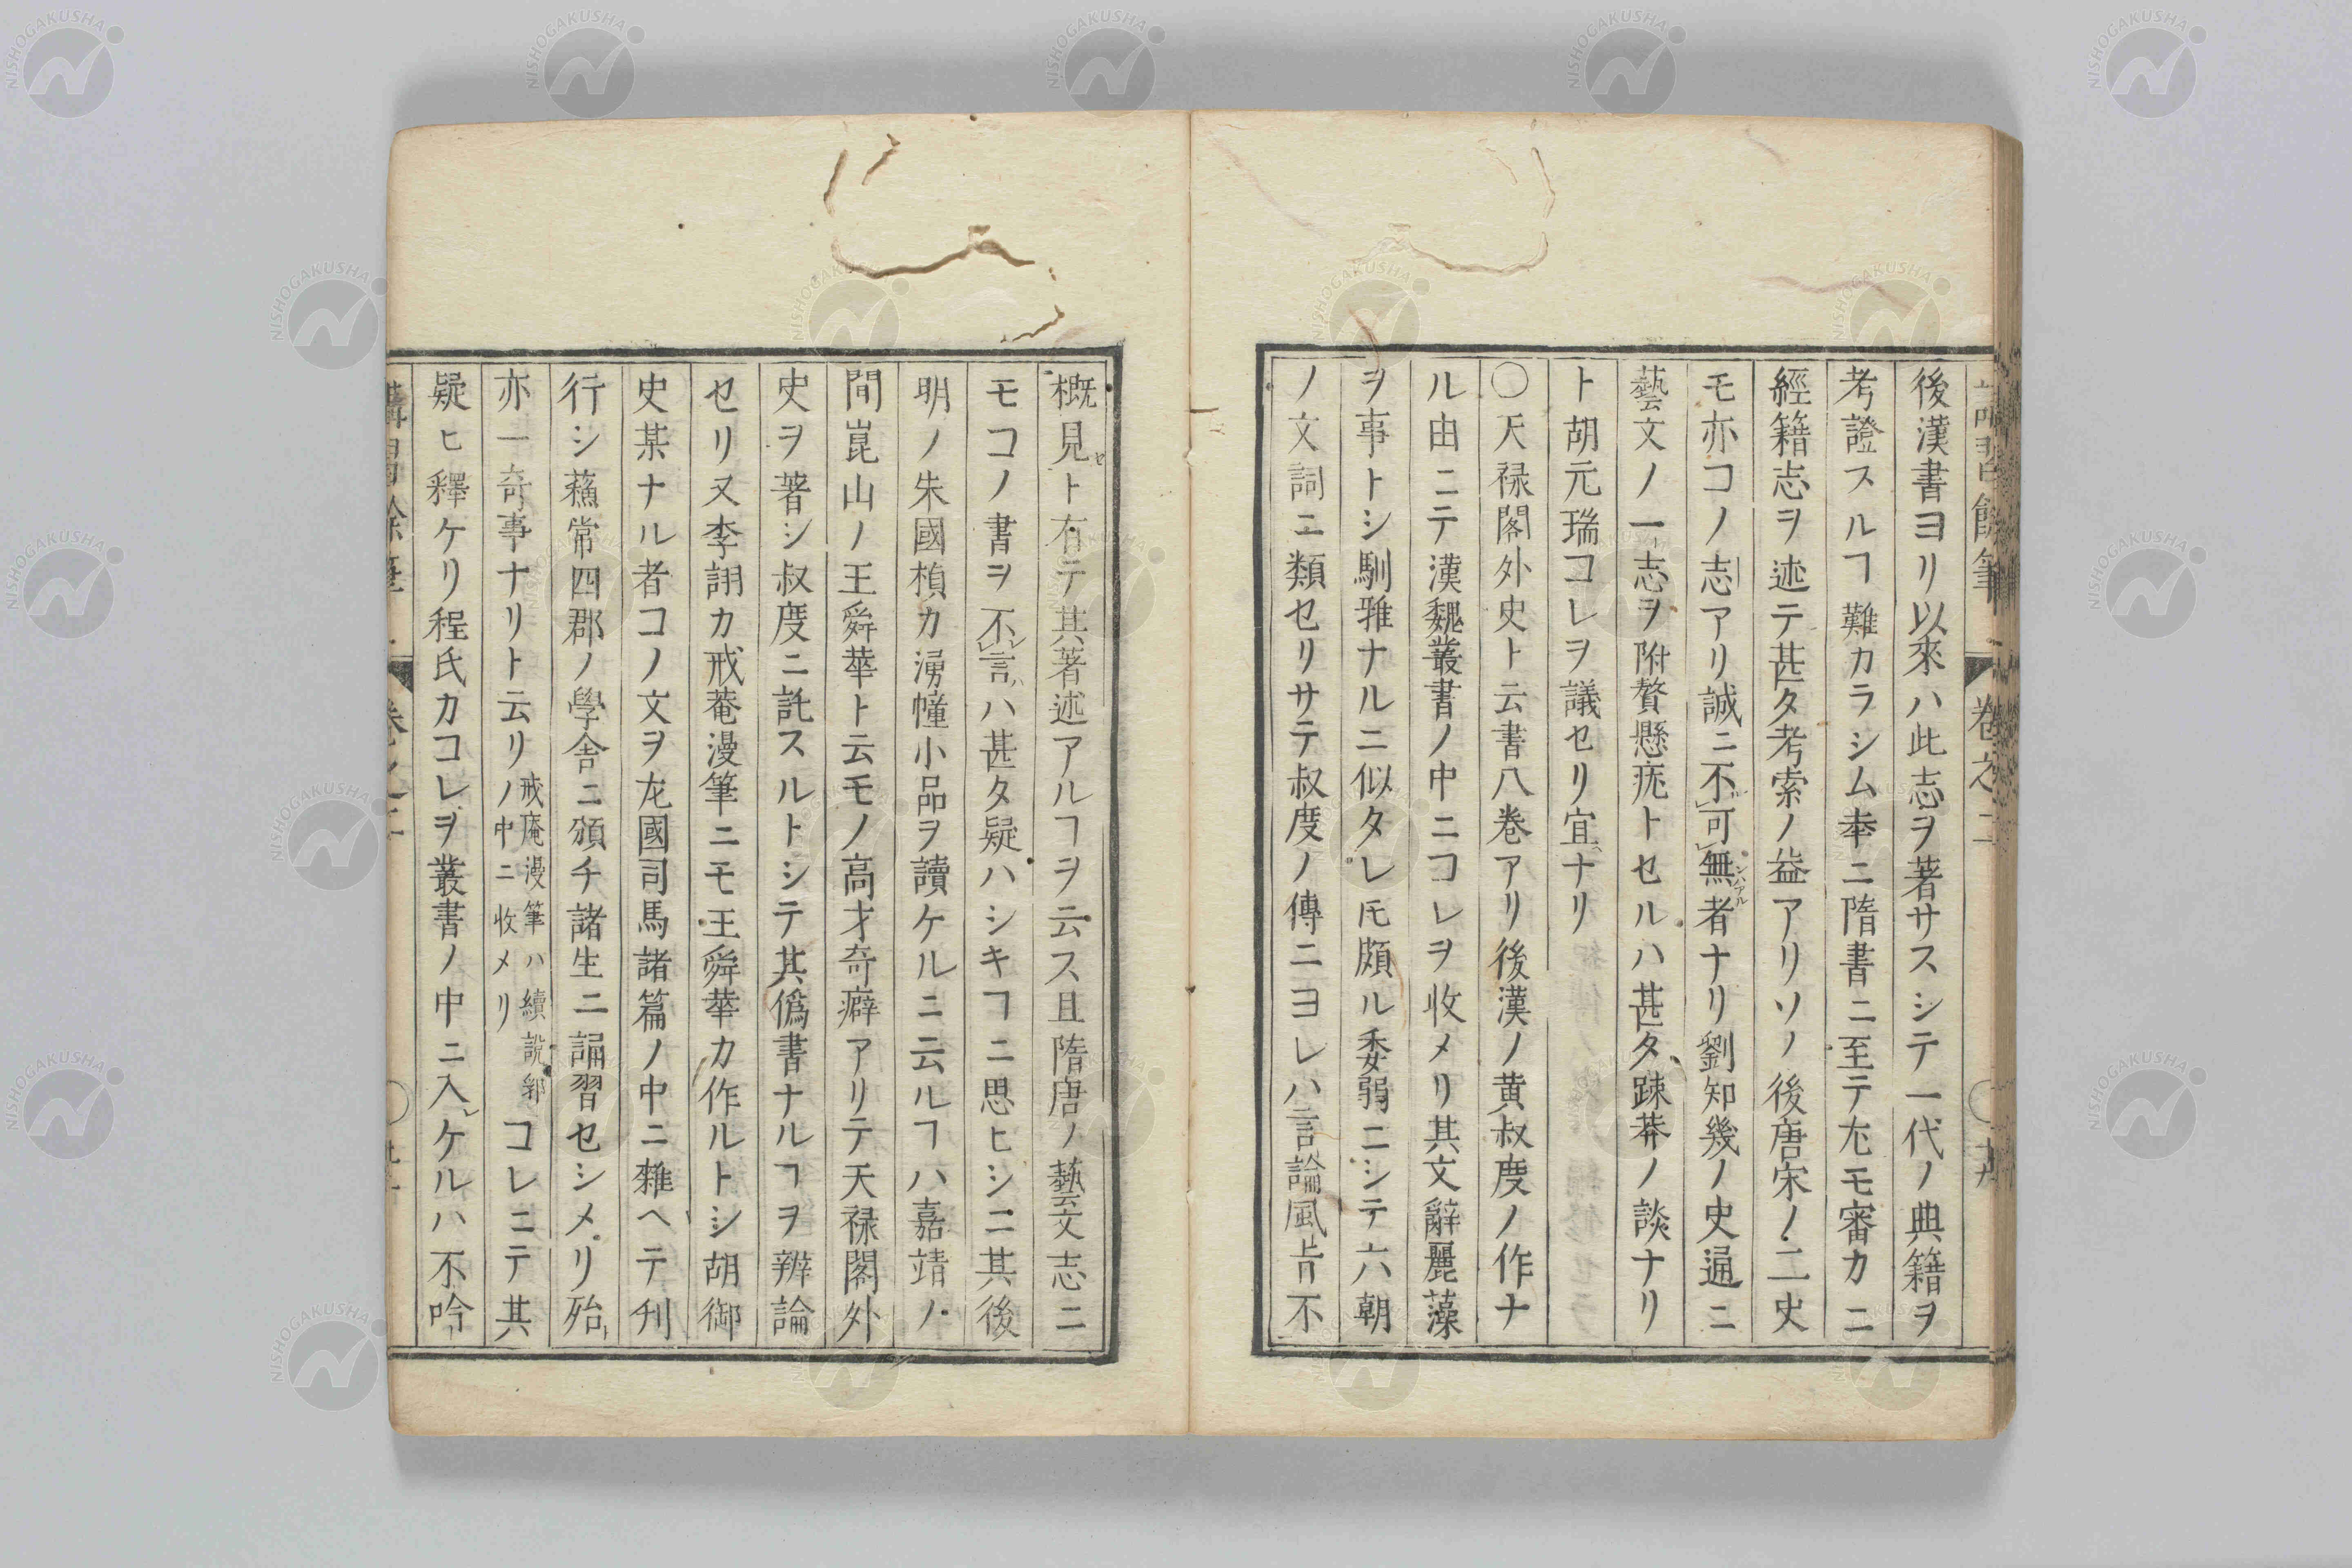 後漢書ヨリ以來ハ此志ヲ著サスシテ一代ノ典籍ヲ
考證スルヿ難カラシム幸ニ隋書ニ至テ尤モ審カニ
經籍志ヲ述テ甚タ考索ノ益アリソノ後唐宋ノ二史
モ亦コノ志アリ誠ニ不可無者ナリ劉知幾ノ史通ニ
藝文ノ一志ヲ附贅懸疣トセルハ甚タ踈莽ノ談ナリ
ト胡元瑞コレヲ議セリ宜ナリ
〇天禄閣外史ト云書八巻アリ後漢ノ黄叔度ノ作ナ
ル由ニテ漢魏叢書ノ中ニコレヲ收メリ其文辭麗藻
ヲ事トシ馴雅ナルニ似タレ𪜈頗ル委弱ニシテ六朝
ノ文詞ニ類セリサテ叔度ノ傳ニヨレハ言論風旨不
概見ト有テ其著述アルヿヲ云ス且隋唐ノ藝文志ニ
モコノ書ヲ不言ハ甚タ疑ハシキヿニ思ヒシニ其後
明ノ朱國楨カ湧幢小品ヲ讀ケルニ云ルヿハ嘉靖ノ
間崑山ノ王舜華ト云モノ高才奇癖アリテ天禄閣外
史ヲ著シ叔度ニ託スルトシテ其僞書ナルヿヲ辨論
セリ又李詡カ戒菴漫筆ニモ王舜華カ作ルトシ胡御
史某ナル者コノ文ヲ左國司馬諸篇ノ中ニ雜ヘテ刋
行シ蘓常四郡ノ學舎ニ頒チ諸生ニ誦習セシメリ殆
亦一奇事ナリト云リ戒庵漫筆ハ續說郛ノ中ニ收メリコレニテ其
疑ヒ釋ケリ程氏カコレヲ叢書ノ中ニ入ケルハ不吟
巻之二